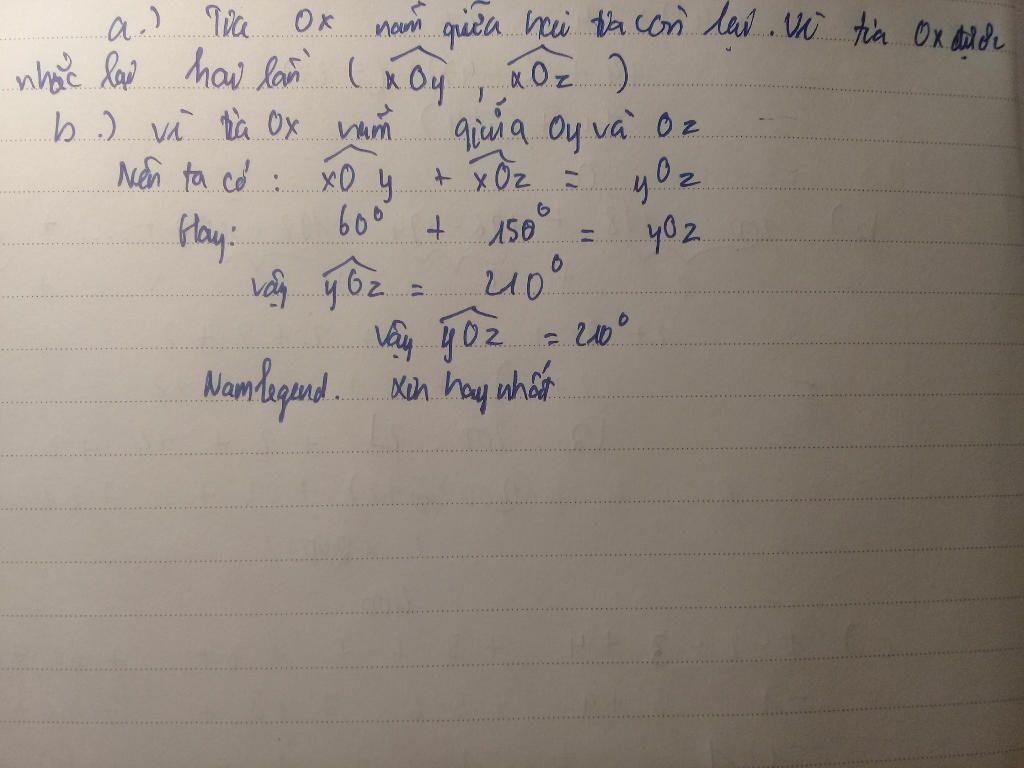 a.) Tia Ox nằm giữa hai tia còn lại. Vì tia Ox được
nhắc lại hai lần ( xOy , xOz )
b.) vì tia Ox nằm giữa Oy và Oz
Nên ta có : xOy + xOz = yOz
Hay: 60⁰ + 150⁰ = yOz
vậy yOz = 210⁰
Vậy yOz = 210⁰
Namlegend. xin hay nhất